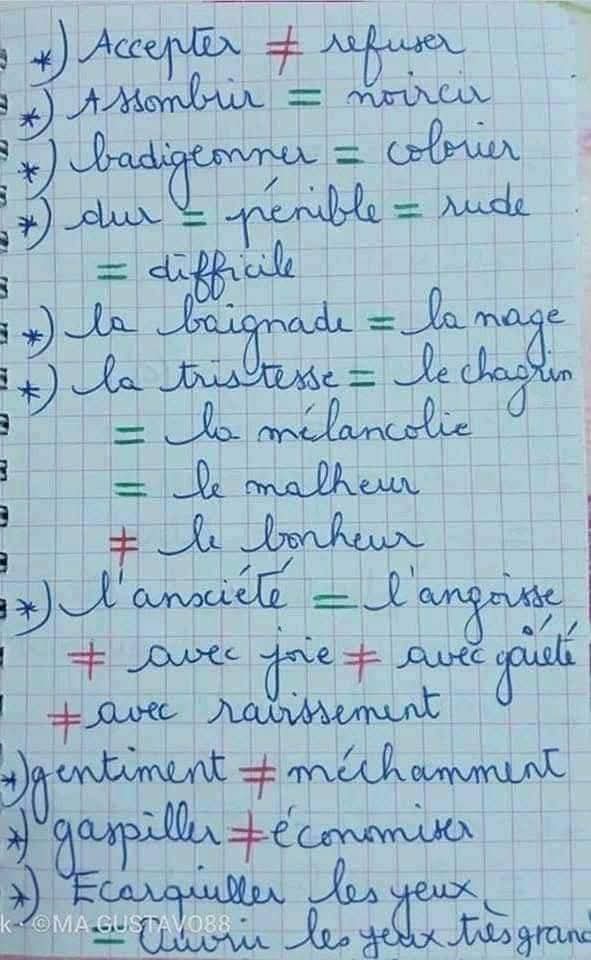 *) Accepter ≠ refuser
*) Assombrir = noircir
*) badigeonner = colorier
*) dur = pénible = rude
= difficile
*) la baignade = la nage
*) la tristesse = le chagrin
= la mélancolie
= le malheur
≠ le bonheur
*) l'anxiété = l'angoisse
≠ avec joie ≠ avec gaieté
≠ avec ravissement
*) gentiment ≠ méchamment
*) gaspiller ≠ économiser
*) Ecarquiller les yeux
k · ©MA GUSTAVO88
= Ouvrir les yeux très grand